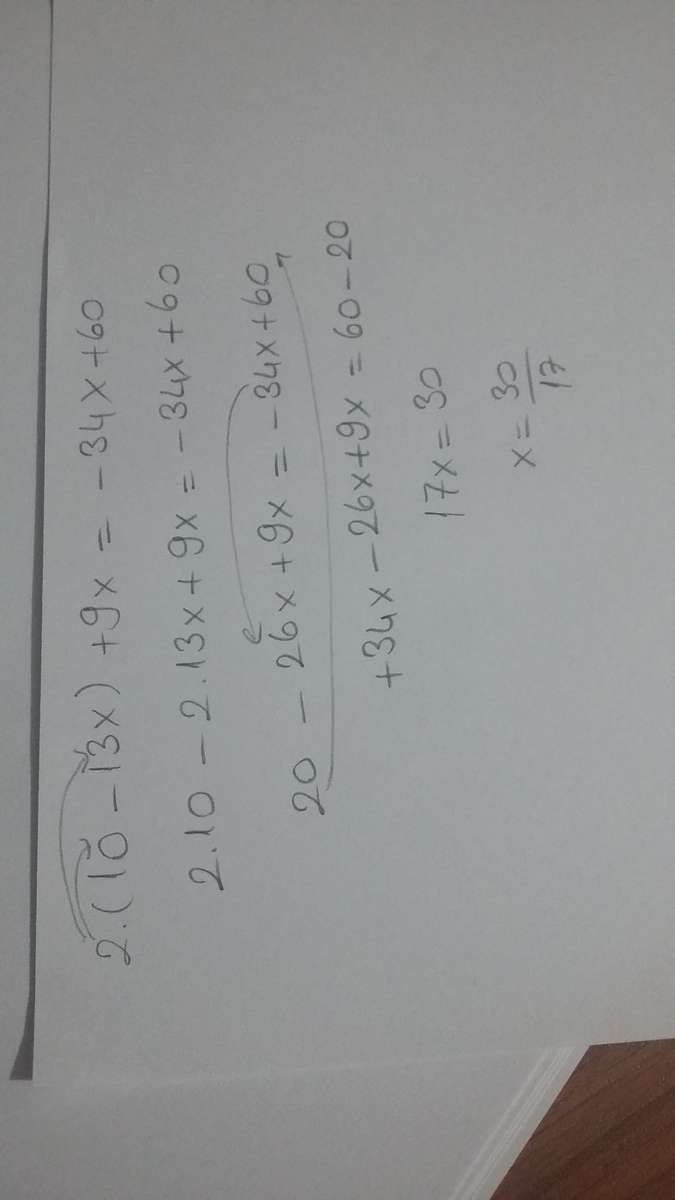 2.(10-13x)+9x = -34x+60
2.10-2.13x+9x = -34x+60
20 - 26x+9x = -34x+60
+34x-26x+9x = 60-20
17x = 30
x = 30/17